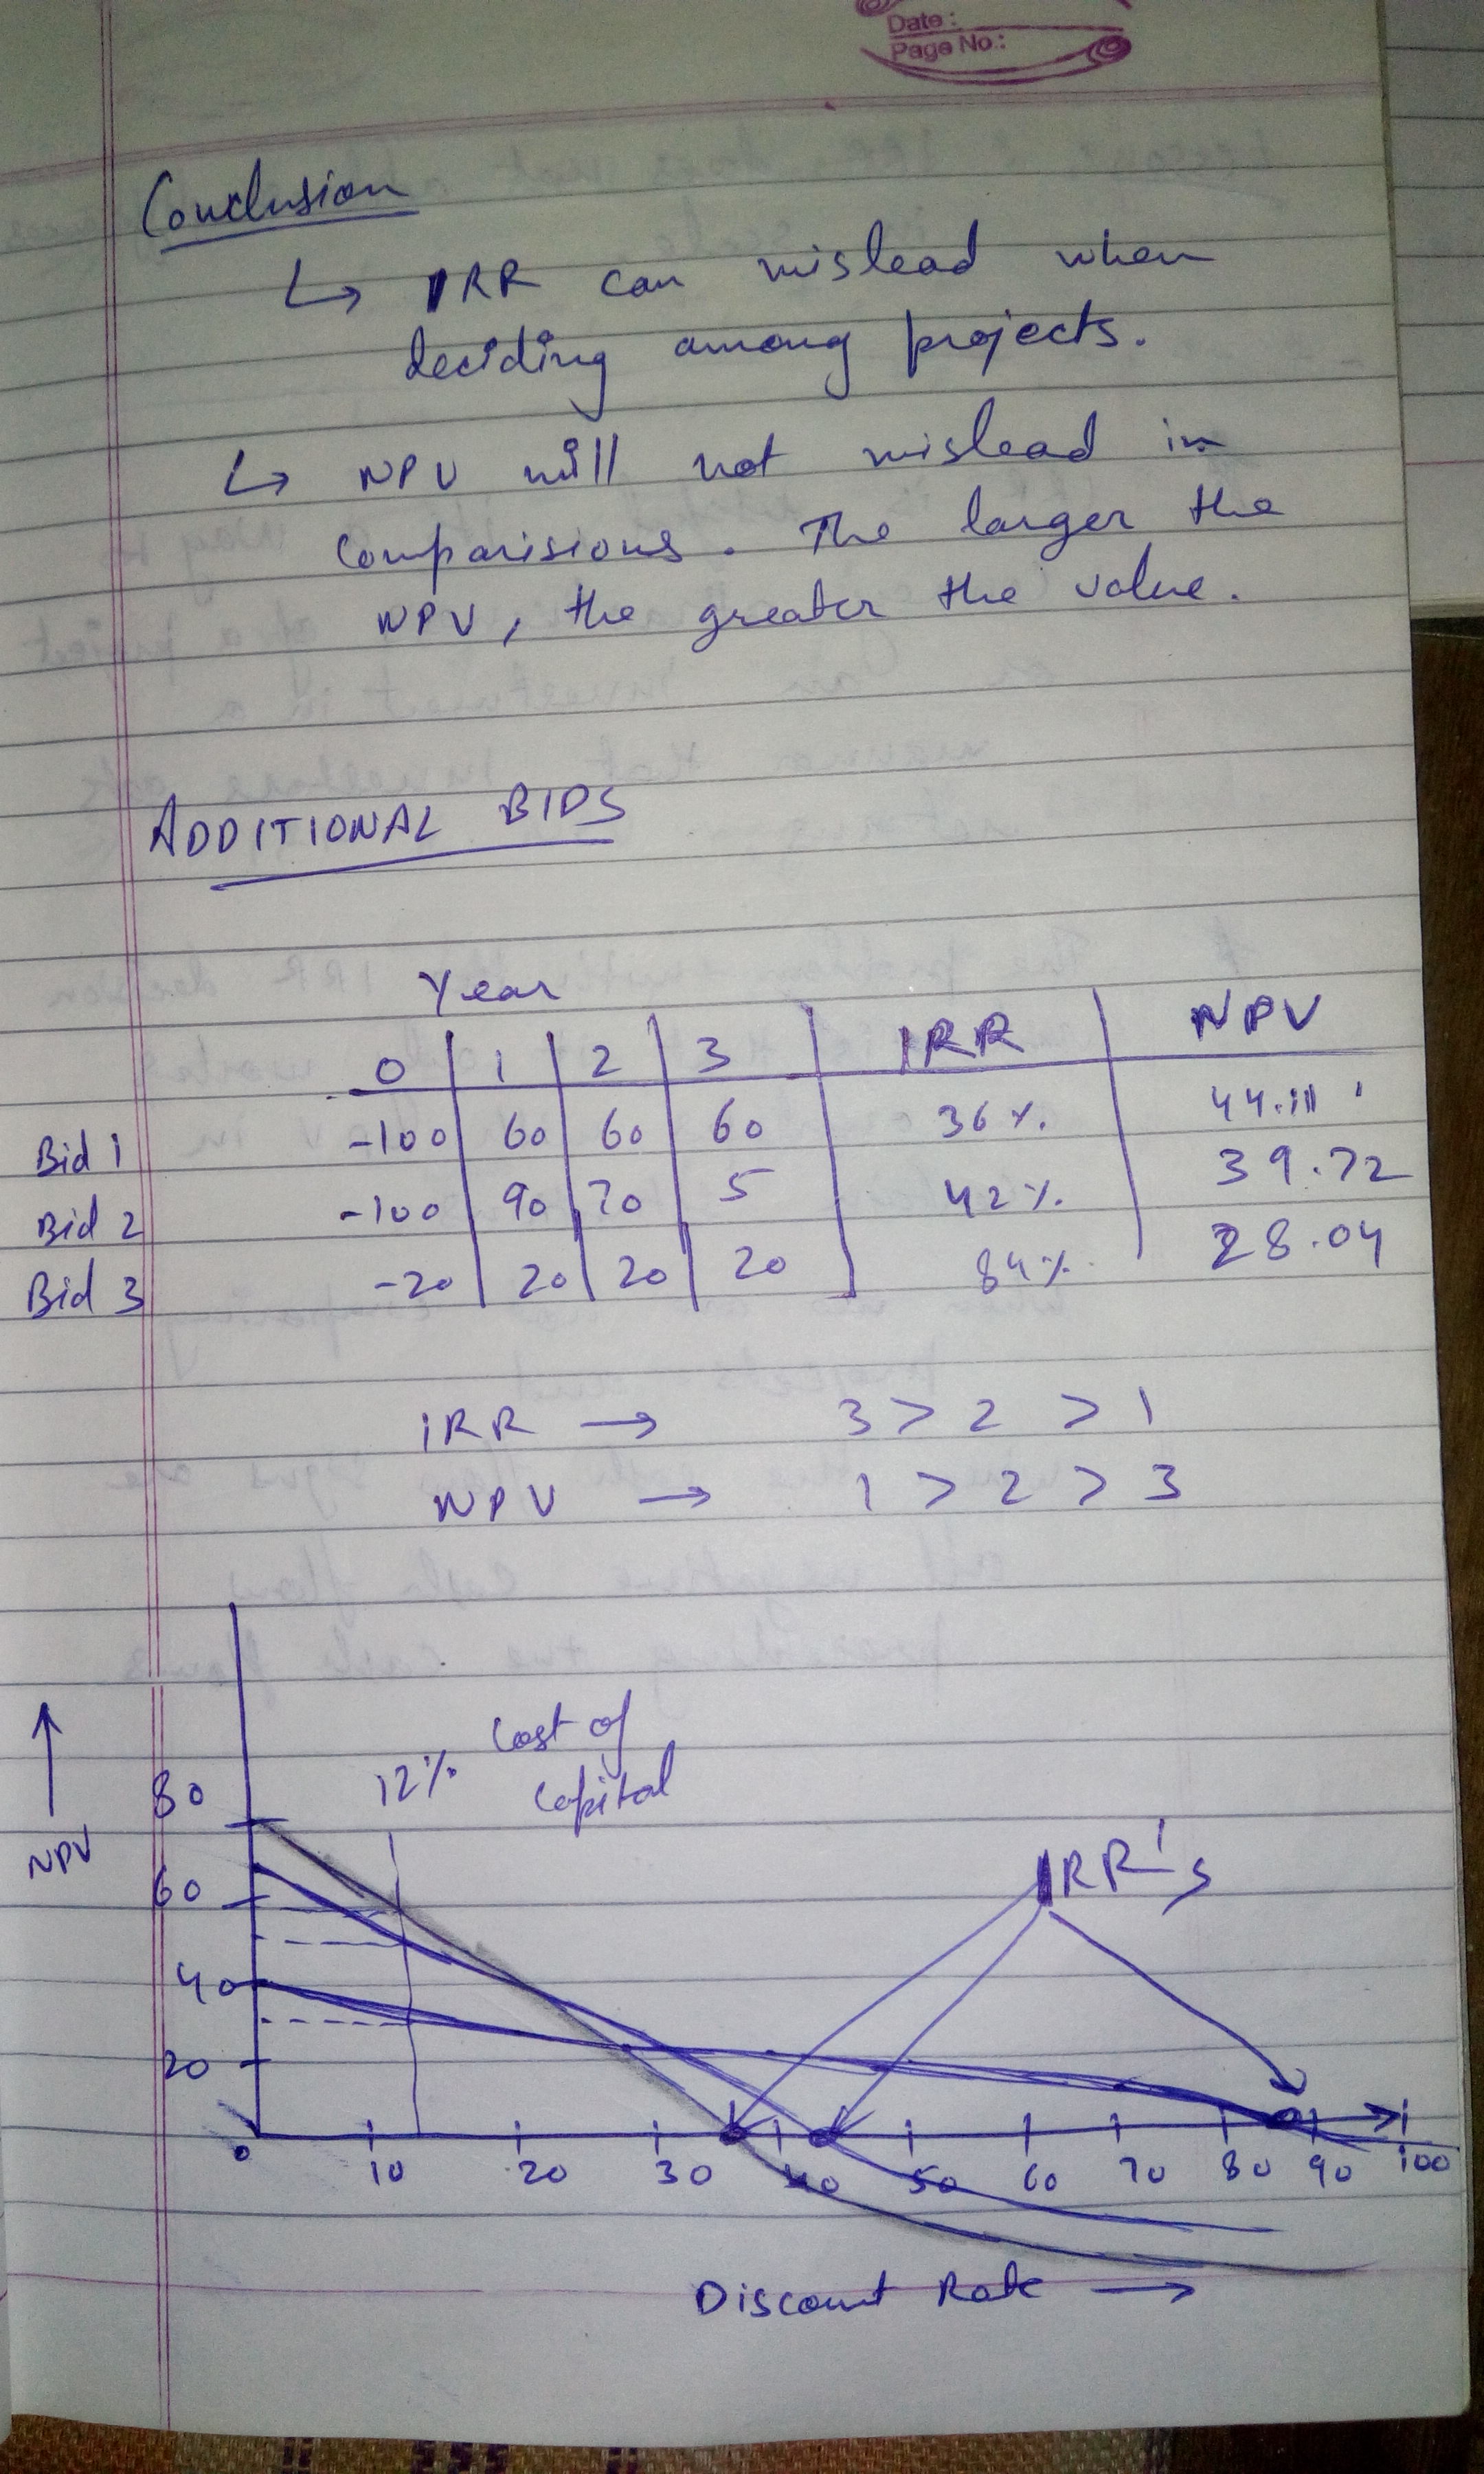 Date :
Page No.:
Conclusion
↳ IRR can mislead when
deciding among projects.
↳ NPV will not mislead in
comparisions. The larger the
NPV, the greater the value.
ADDITIONAL BIDS
Year
0 1 2 3 IRR NPV
Bid 1 -100 60 60 60 36%. 44.111
Bid 2 -100 90 70 5 42%. 39.72
Bid 3 -20 20 20 20 84%. 28.04
IRR → 3 > 2 > 1
NPV → 1 > 2 > 3
12%. Cost of
Capital
NPV
80
60
40
20
IRR's
0 10 20 30 40 50 60 70 80 90 100
Discount Rate →